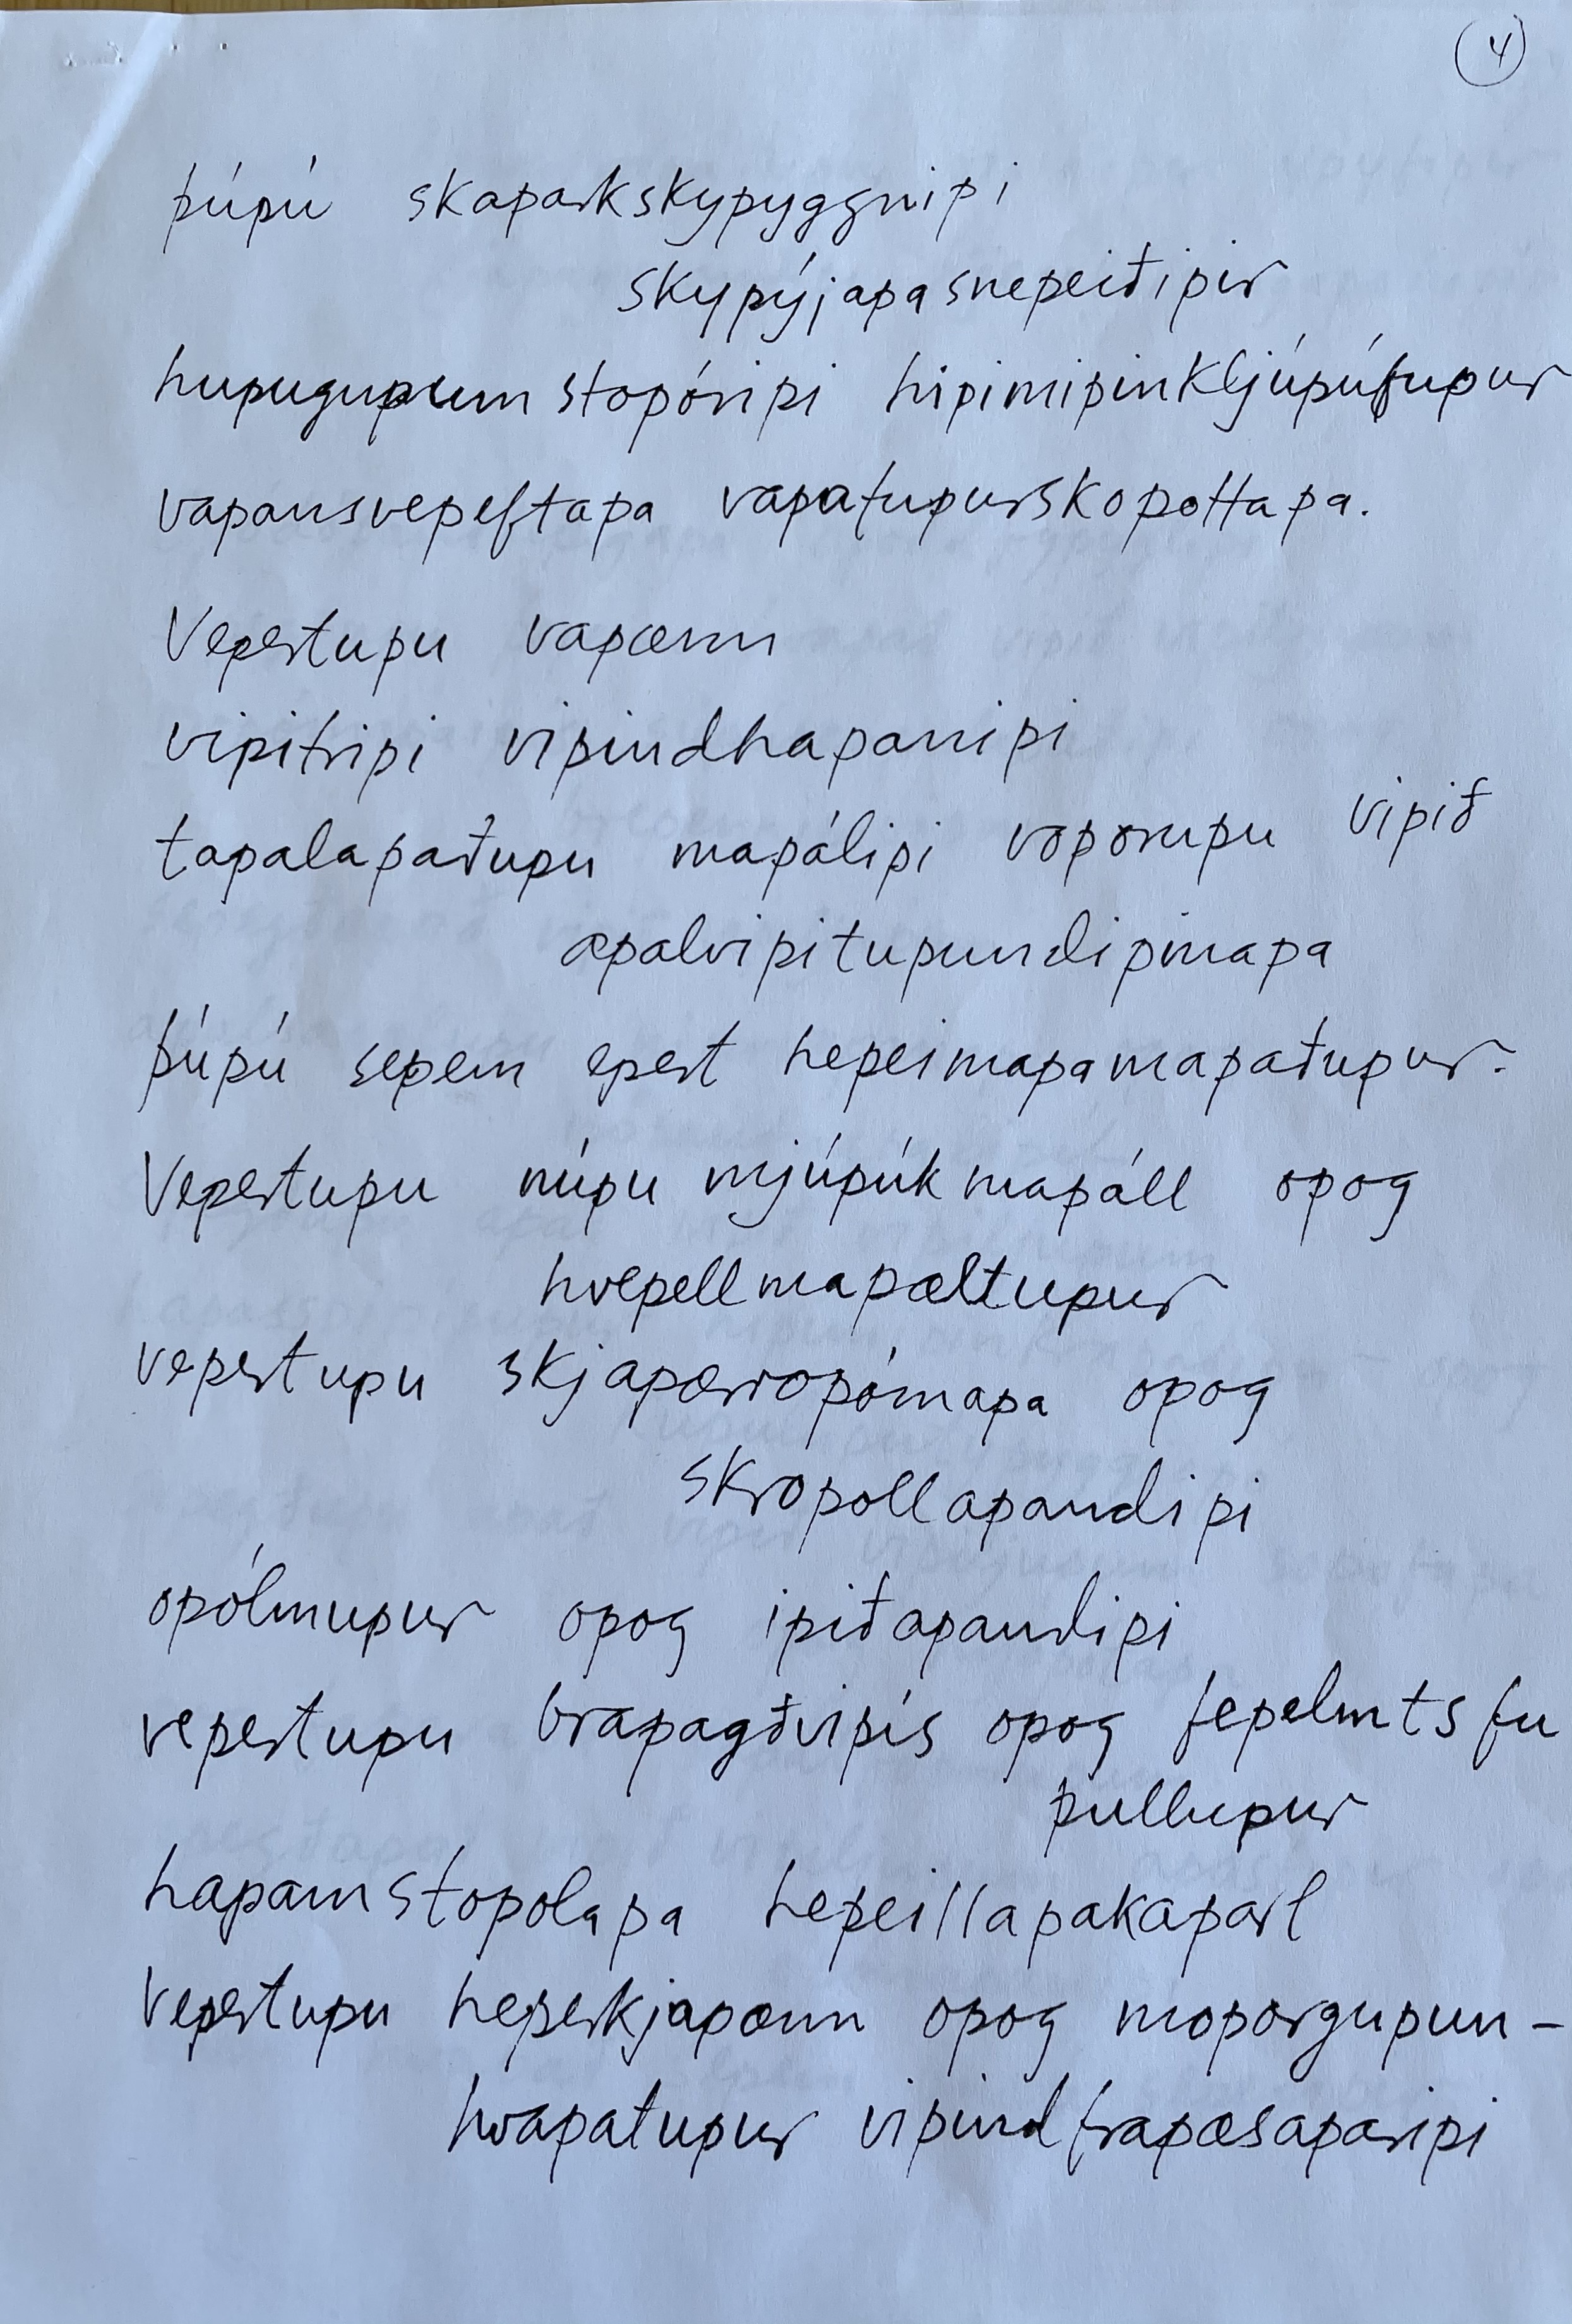 4
þúpú skaparkskypyggnipi
skypýjapasnepeiðipir
hupugupumstopóripi hipimipinkljúpúfupur
vapansvepeftapa vapatupurskopottapa.
Vepertupu vapænn
vipitripi vipindhapanipi
tapalapaðupu mapálipi voporupu vipið
apalvipitupundipinapa
þúpú sepem epert hepeimapamapaðupur.
Vepertupu núpu mjúpúkmapáll opog
hvepellmapæltupur
vepertupu skjapærropómapa opog
skropollapandipi
opólmupur opog ipiðapandipi
vepertupu brapagðvipís opog fepelmtsfu
pullupur
hapamstopolapa hepeillapakaparl
Vepertupu heperkjapænn opog moporgupun-
hrapaðupur vipindfrapæsaparipi